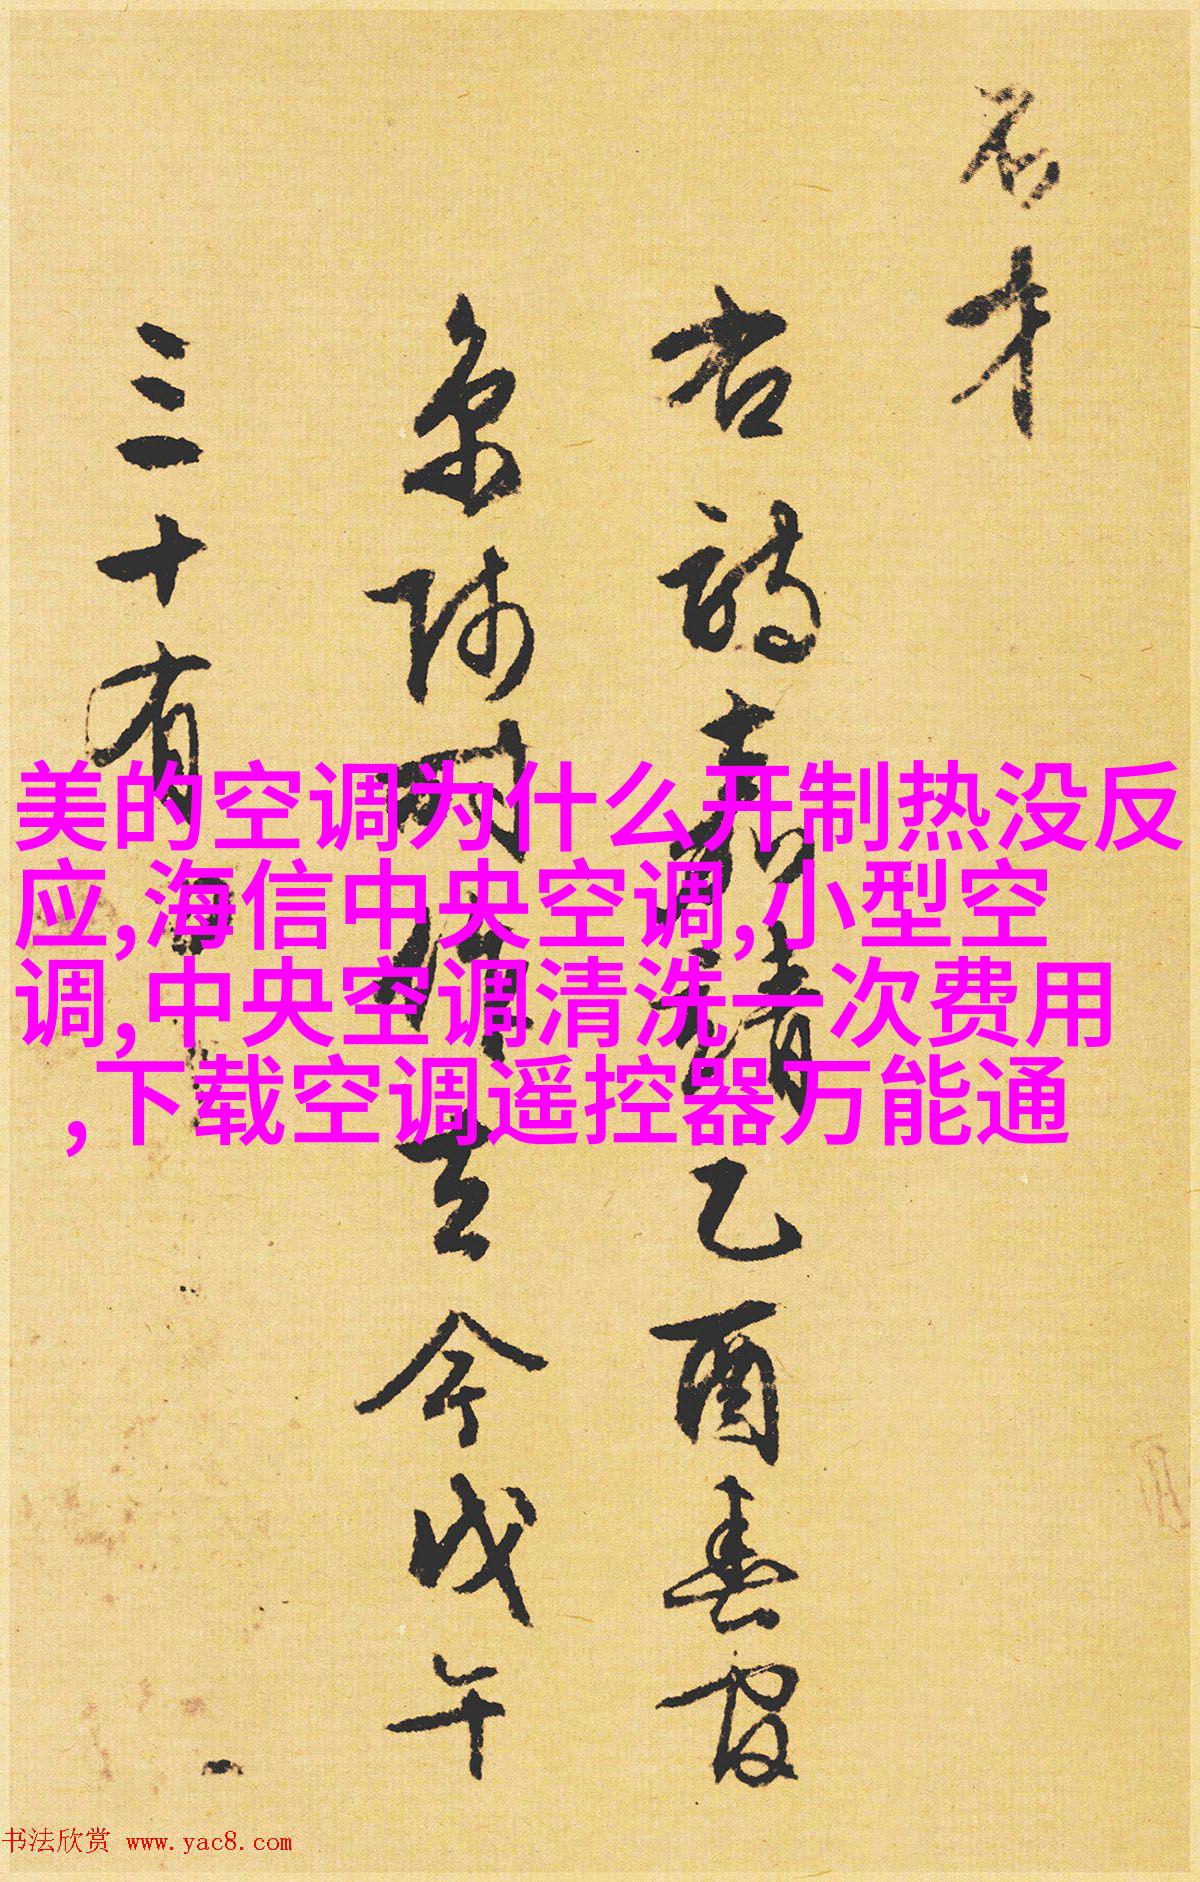 名才
右詩嘉靖乙酉春寫
京師同値去今戊午
三十有
美的空调为什么开制热没反
应,海信中央空调,小型空
调,中央空调清洗一次费用
,下载空调遥控器万能通
书法欣赏 www.yac8.com